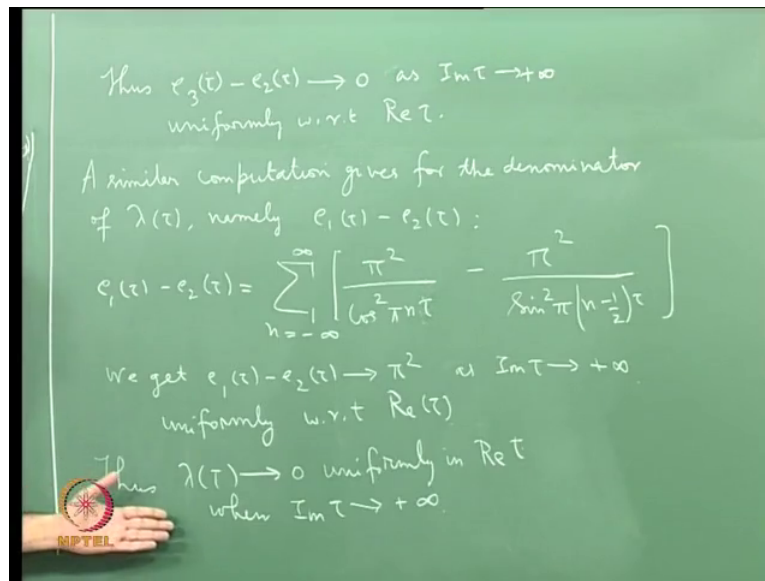 Thus e₃(τ) - e₂(τ) → 0 as Im τ → +∞
uniformly w.r.t Re τ.
A similar computation gives for the denominator
of λ(τ), namely e₁(τ) - e₂(τ):
e₁(τ) - e₂(τ) = ∑_{n=-∞}^{∞} [ π² / cos² πnτ - π² / sin² π(n-½)τ ]
We get e₁(τ) - e₂(τ) → π² as Im τ → +∞
uniformly w.r.t Re(τ)
Thus λ(τ) → 0 uniformly in Re τ
when Im τ → +∞.
NPTEL